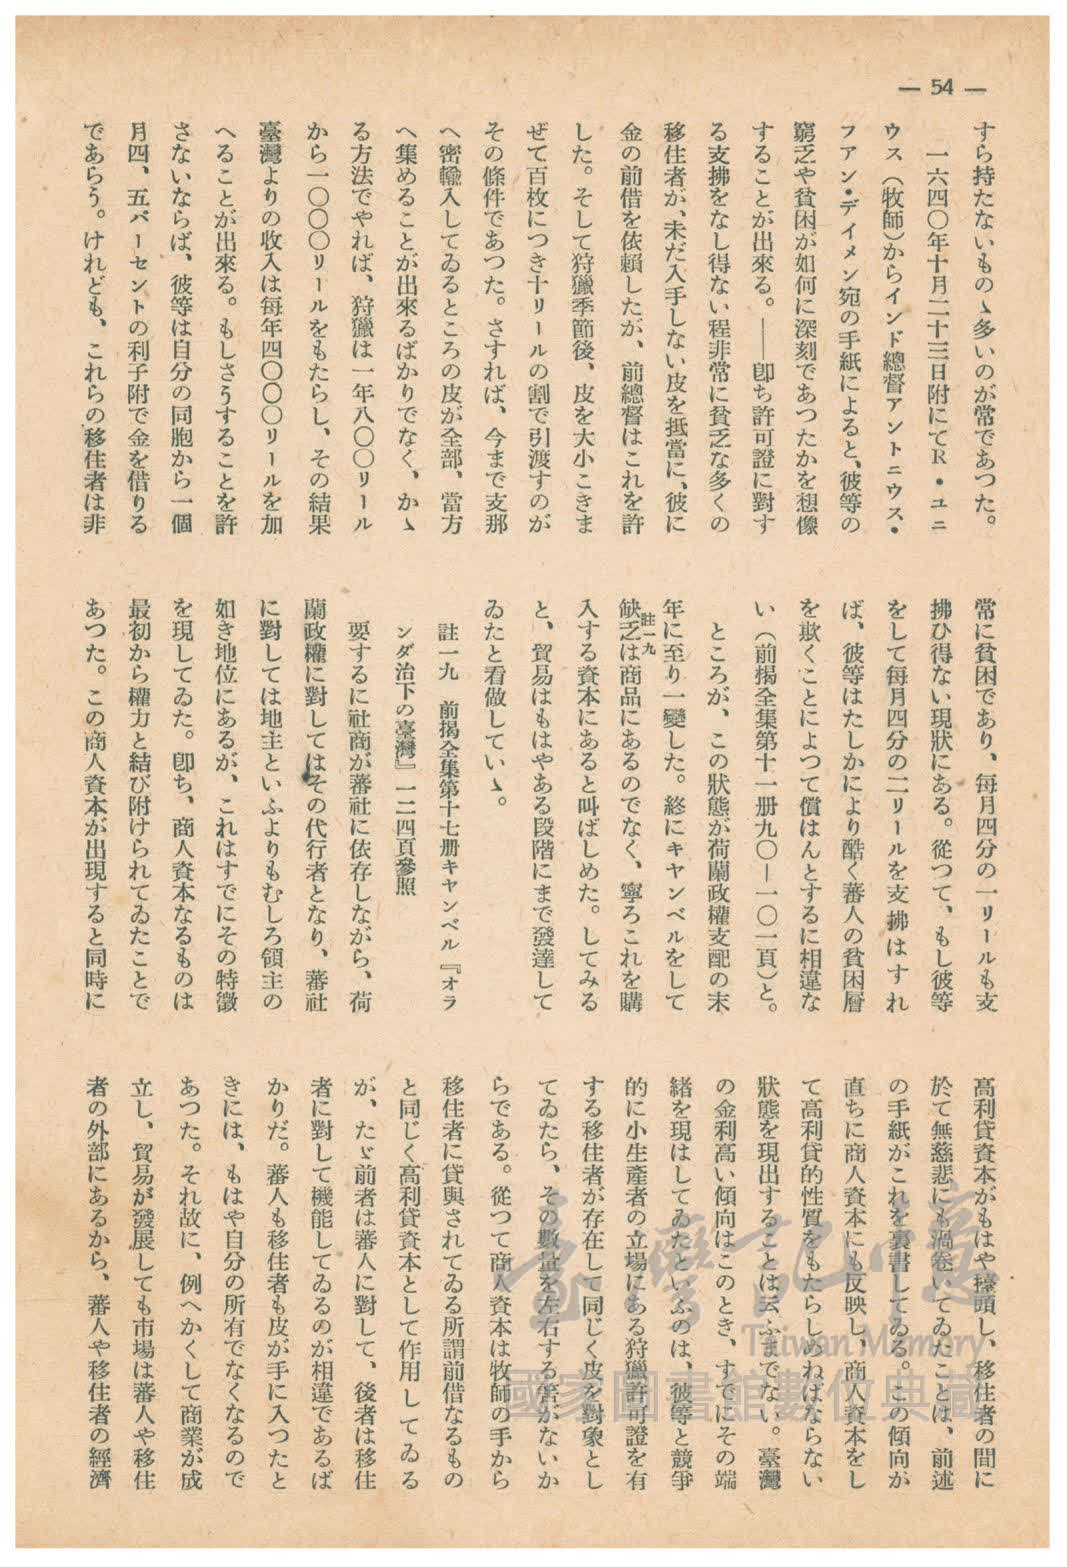 — 54 —
すら持たないものゝ多いのが常であつた。
一六四〇年十月二十三日附にてR・ユニ
ウス（牧師）からインド總督アントニウス・
フアン・デイメン宛の手紙によると、彼等の
窮乏や貧困が如何に深刻であつたかを想像
することが出來る。――卽ち許可證に對す
る支拂をなし得ない程非常に貧乏な多くの
移住者が、未だ入手しない皮を抵當に、彼に
金の前借を依賴したが、前總督はこれを許
した。そして狩獵季節後、皮を大小こきま
ぜて百枚につき十リールの割で引渡すのが
その條件であつた。さすれば、今まで支那
へ密輸入してゐるところの皮が全部、當方
へ集めることが出來るばかりでなく、かゝ
る方法でやれば、狩獵は一年八〇〇リール
から一〇〇〇リールをもたらし、その結果
臺灣よりの收入は每年四〇〇〇リールを加
へることが出來る。もしさうすることを許
さないならば、彼等は自分の同胞から一個
月四、五パーセントの利子附で金を借りる
であらう。けれども、これらの移住者は非
常に貧困であり、每月四分の一リールも支
拂ひ得ない現狀にある。從つて、もし彼等
をして每月四分の二リールを支拂はすれ
ば、彼等はたしかにより酷く蕃人の貧困層
を欺くことによつて償はんとするに相違な
い（前揭全集第十一册九〇―一〇一頁）と。
ところが、この狀態が荷蘭政權支配の末
年に至り一變した。終にキヤンベルをして
缺乏は商品にあるのでなく、寧ろこれを購
註一九
入する資本にあると叫ばしめた。してみる
と、貿易はもはやある段階にまで發達して
ゐたと看做していゝ。
註一九　前揭全集第十七册キヤンベル『オラ
ンダ治下の臺灣』一二四頁參照
要するに社商が蕃社に依存しながら、荷
蘭政權に對してはその代行者となり、蕃社
に對しては地主といふよりもむしろ領主の
如き地位にあるが、これはすでにその特徵
を現してゐた。卽ち、商人資本なるものは
最初から權力と結び附けられてゐたことで
あつた。この商人資本が出現すると同時に
高利貸資本がもはや擡頭し、移住者の間に
於て無慈悲にも渦卷いてゐたことは、前述
の手紙がこれを裏書してゐる。この傾向が
直ちに商人資本にも反映し、商人資本をし
て高利貸的性質をもたらしめねばならない
狀態を現出することは云ふまでない。臺灣
の金利高い傾向はこのとき、すでにその端
緒を現はしてゐたといふのは、彼等と競爭
的に小生產者の立場にある狩獵許可證を有
する移住者が存在して同じく皮を對象とし
てゐたら、その數量を左右する筈がないか
らである。從つて商人資本は牧師の手から
移住者に貸與されてゐる所謂前借なるもの
と同じく高利貸資本として作用してゐる
が、たゞ前者は蕃人に對して、後者は移住
者に對して機能してゐるのが相違であるば
かりだ。蕃人も移住者も皮が手に入つたと
きには、もはや自分の所有でなくなるので
あつた。それ故に、例へかくして商業が成
立し、貿易が發展しても市場は蕃人や移住
者の外部にあるから、蕃人や移住者の經濟
臺灣記憶
Taiwan Memory
國家圖書館數位典藏